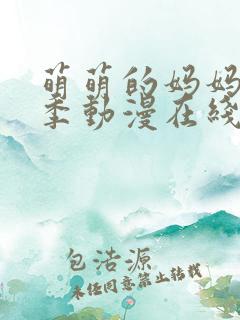 萌萌的妈妈
季動漫在綫
包浩源
未经同意禁止转载